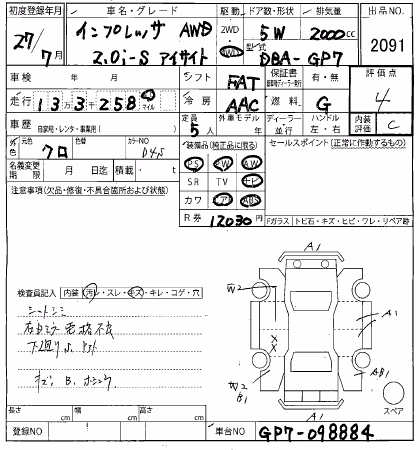 初度登録年月 車名・グレード 駆動 ドア数・形状 排気量 出品NO.
27年 7月 インプレッサ AWD 2WD 5W 2000cc 2091
2.0i-S アイサイト 4WD 型式 DBA-GP7
車検 年 月 シフト FAT 保証書 有・無 評価点
走行 13万3千258 マイル 冷房 AAC 燃料 G 4
車歴 自家用・レンタ・事業用( ) 定員 5人 外車モデル 年 ディーラー 並行 ハンドル 左・右 内装評価 C
外色 元色 クロ 色替 カラーNO D4S 装備品(純正品に限る) セールスポイント(正常に作動するもの)
PS PW AW
名義変更期限 月 日迄 積載 ・ t SR TV ナビ
注意事項(欠品・修復・不具合箇所および状態) カワ エアB ABS
R券 12030円 Fガラス トビ石・キズ・ヒビ・ワレ・リペア跡
A1
検査員記入 内装 汚レ・スレ・キズ・キレ・コゲ・穴
W2 A1
シートシミ
XX
下廻り
AB1
W2
B1
キズ B.
A1
スペア
長さ cm 幅 cm 高さ cm
登録NO 車台NO GP7-098884